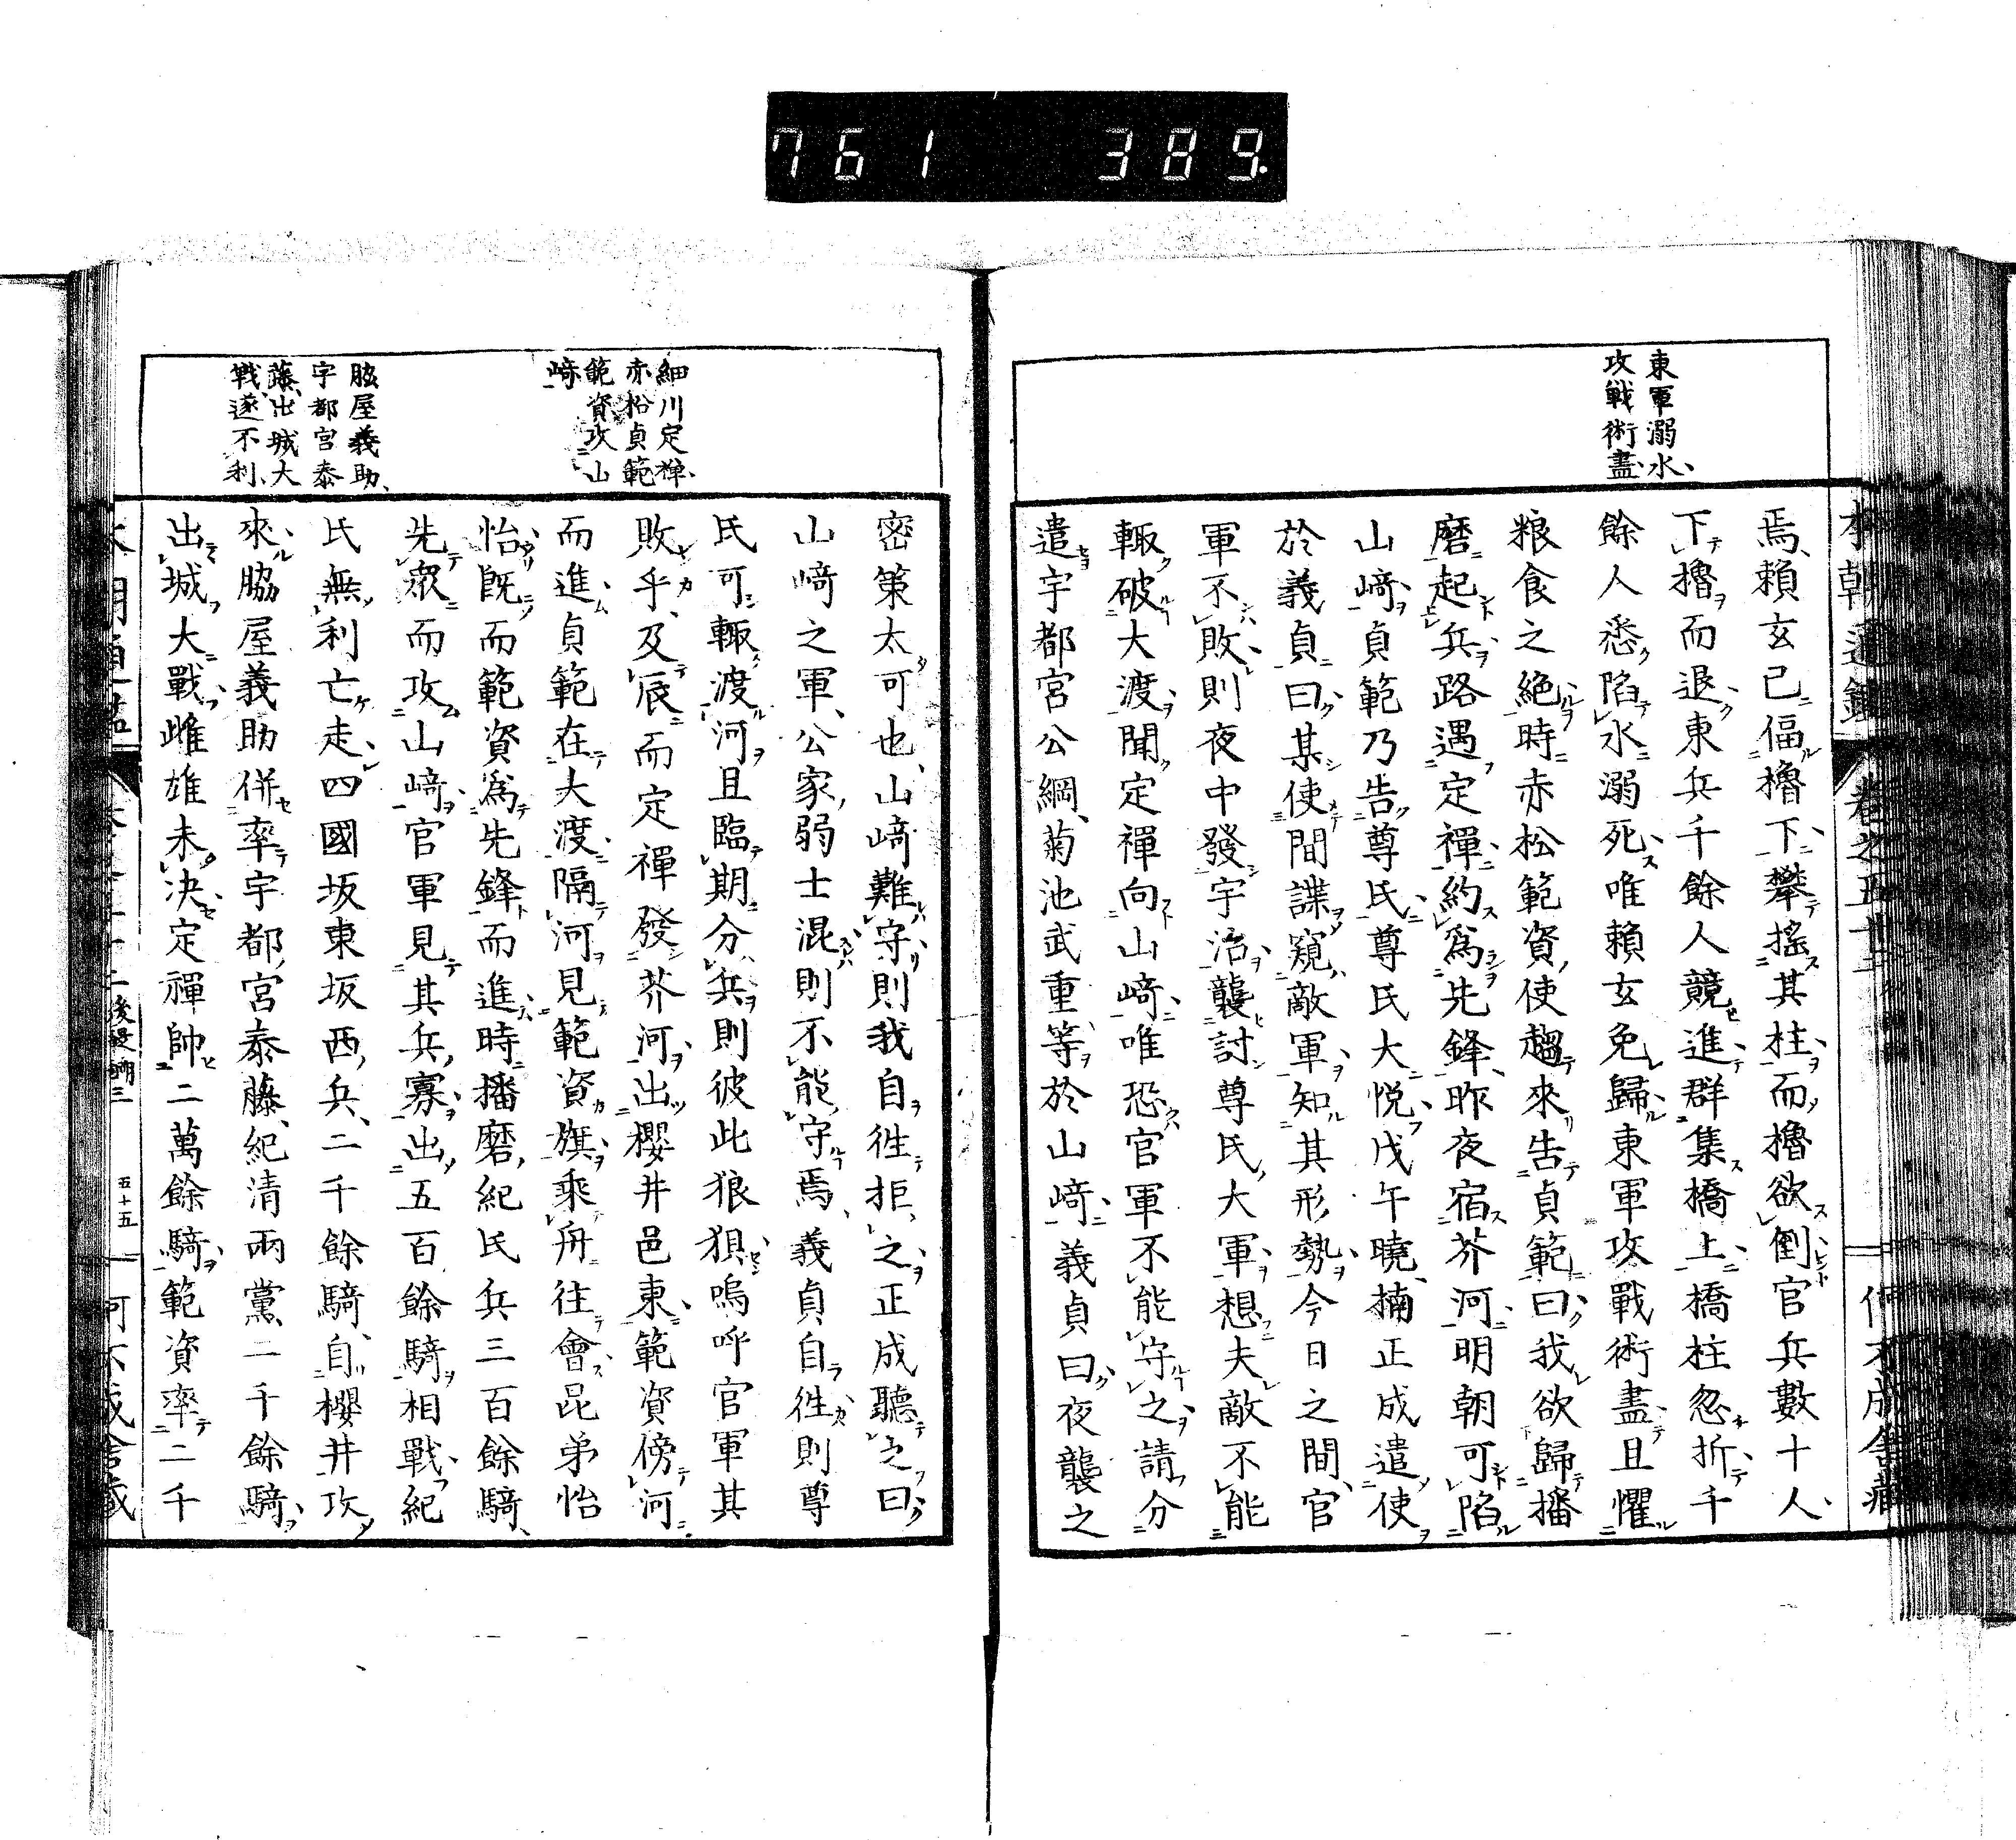 761 389
東軍溺水
攻戰術盡
焉、賴玄已偪櫓下、攀搖其柱而櫓欲倒官兵數十人、
下櫓而退東兵千餘人競進群集橋上橋柱忽折千
餘人悉陷水溺死唯賴玄免歸東軍攻戰術盡且懼
粮食之絕時赤松範資使趨來告貞範曰我欲歸播
磨起兵路遇定禪約爲先鋒昨夜宿芥河明朝可陷
山﨑貞範乃告尊氏尊氏大悅戊午曉楠正成遣使
於義貞曰某使間諜窺敵軍知其形勢今日之間官
軍不敗則夜中發宇治襲討尊氏大軍想夫敵不能
輙破大渡聞定禪向山﨑唯恐官軍不能守之請分
遣宇都宮公綱、菊池武重等於山﨑義貞曰夜襲之
細川定禪、
赤松貞範
範資攻山
﨑
脇屋義助、
宇都宮泰
藤、出城大
戰遂不利、
密策太可也、山﨑難守則我自徃拒之正成聽之曰
山﨑之軍、公家弱士混則不能守焉、義貞自徃則尊
氏可輙渡河且臨期分兵則彼此狼狽嗚呼官軍其
敗乎、及辰而定禪發芥河出櫻井邑東範資傍河
而進貞範在大渡隔河見範資旗乘舟往會昆弟怡
怡旣而範資爲先鋒而進時播磨紀氏兵三百餘騎、
先衆而攻山﨑官軍見其兵寡出五百餘騎相戰紀
氏無利亡走四國坂東坂西兵、二千餘騎自櫻井攻
來脇屋義助併率宇都宮泰藤、紀清兩黨二千餘騎
出城大戰雌雄未決定禪帥二萬餘騎範資率二千
五十五